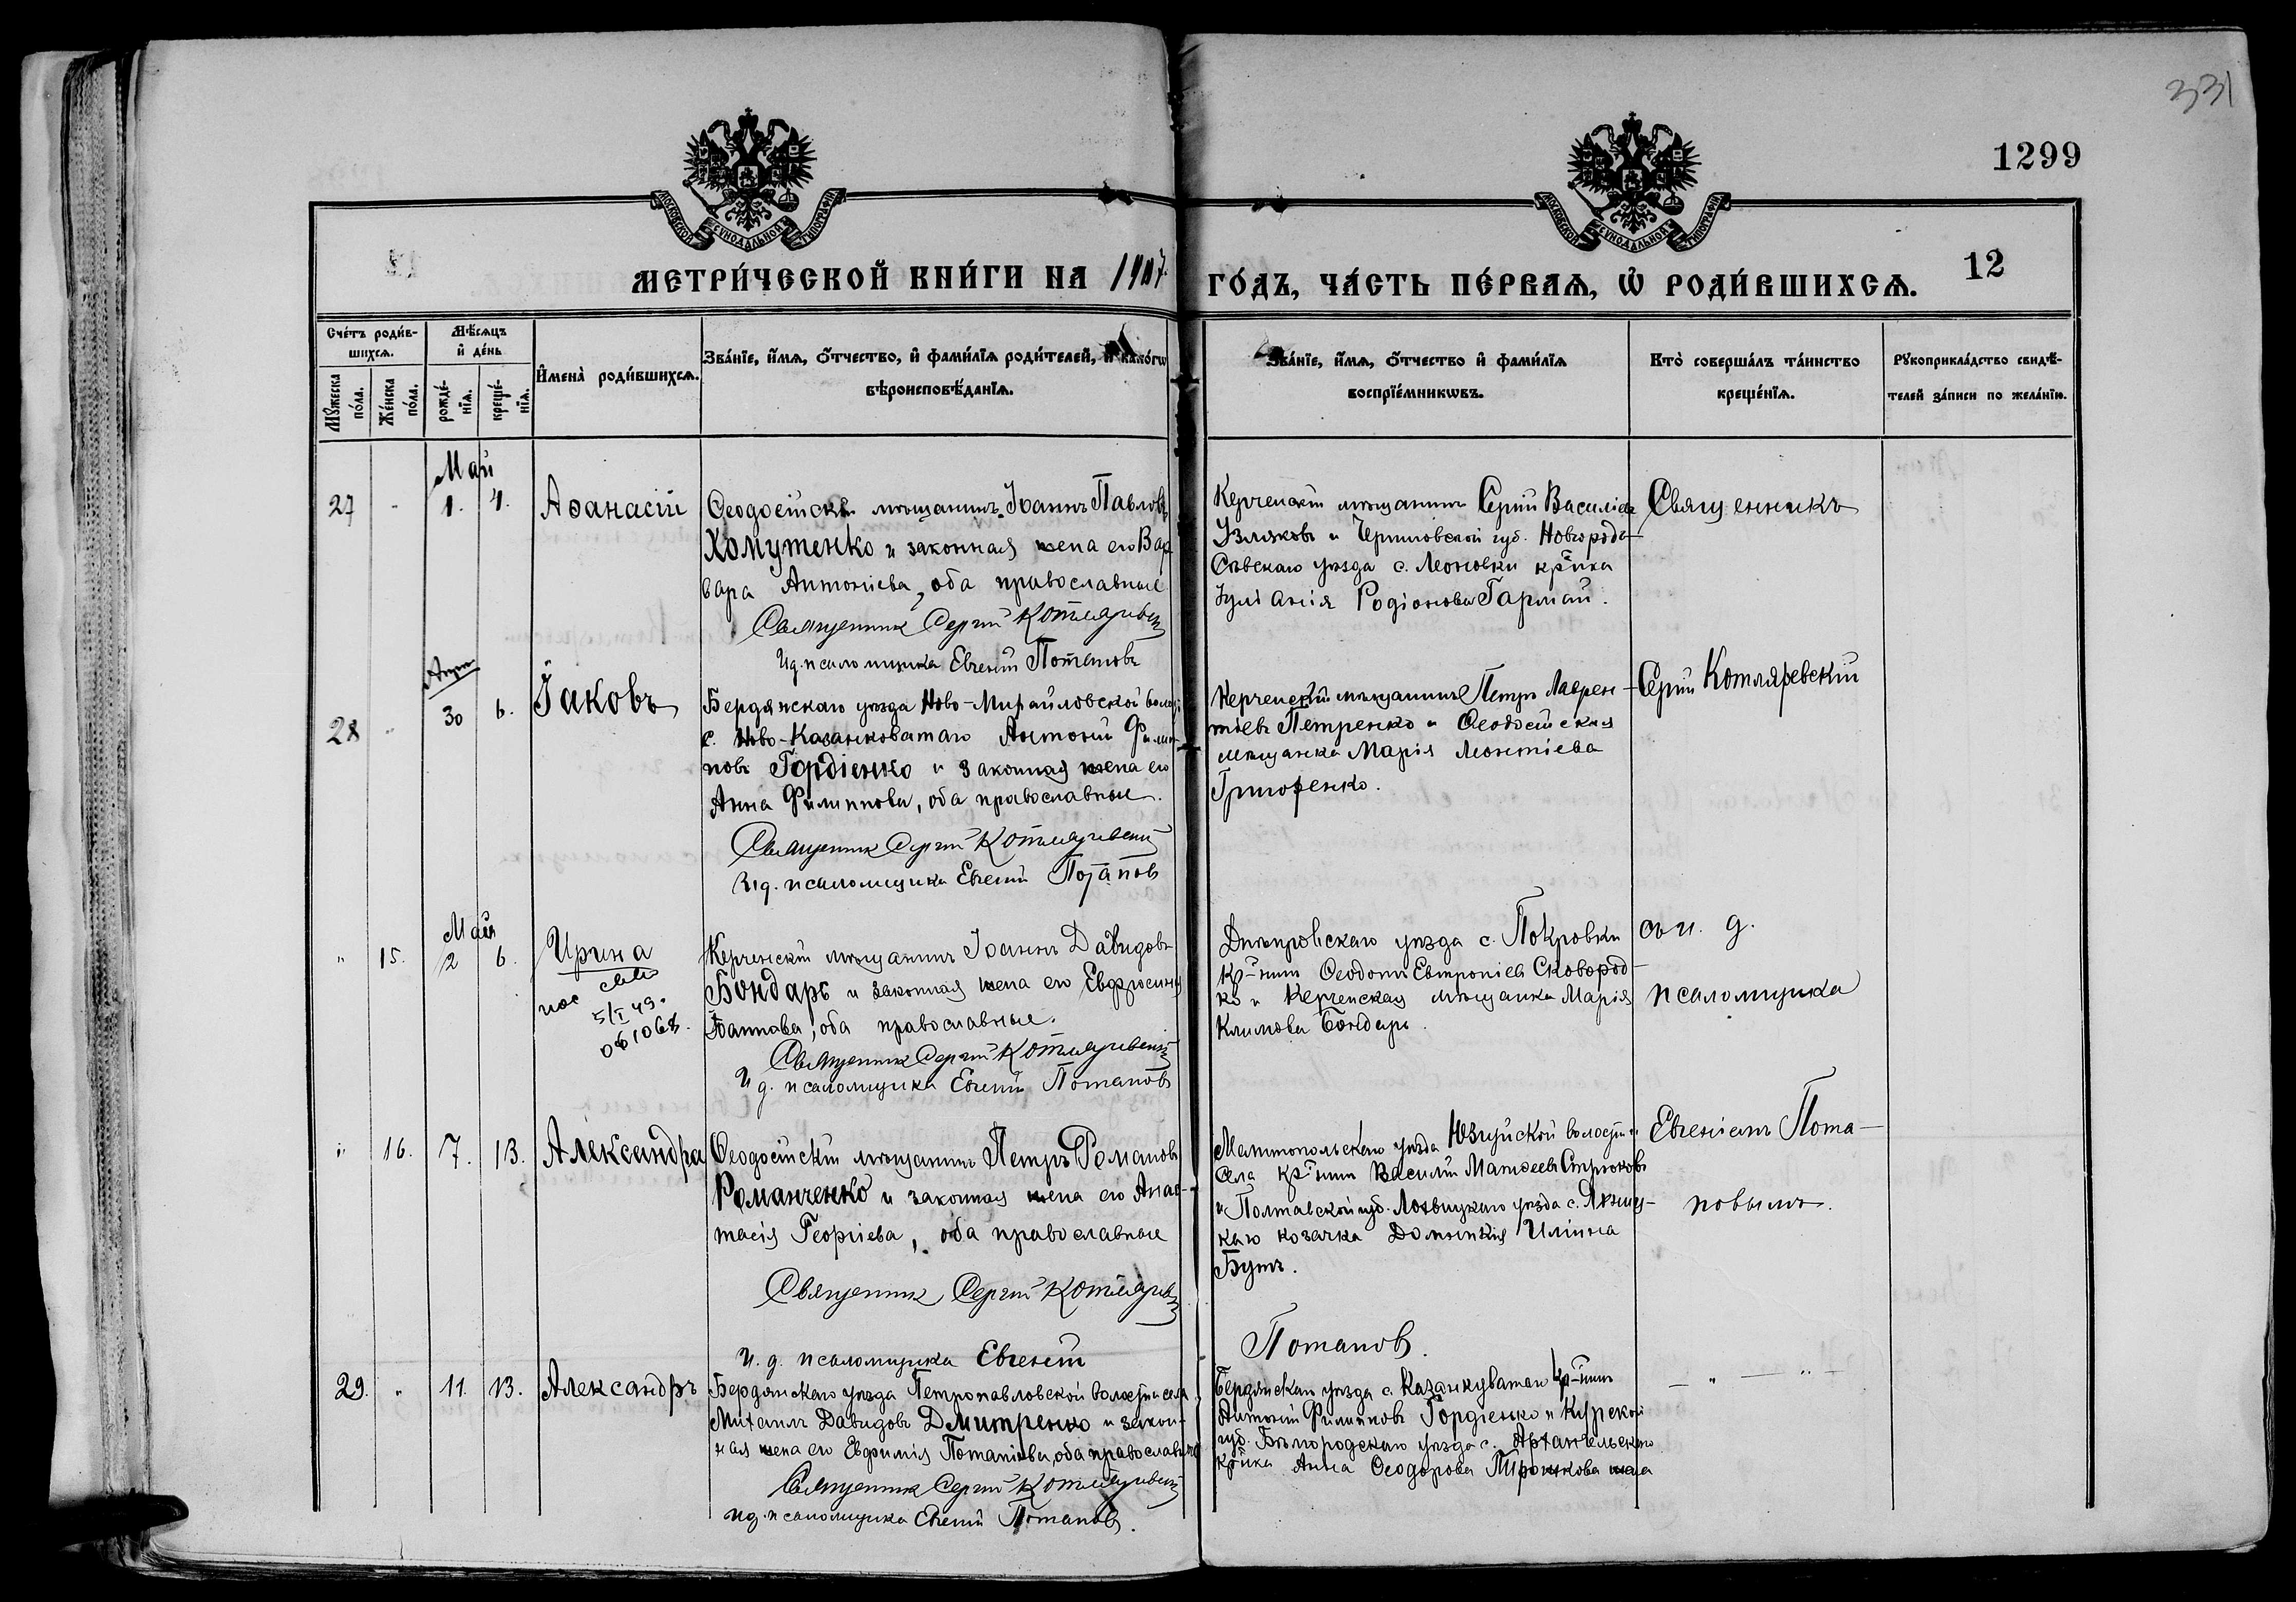 331
1299
МОСКОВСКОЙ СѴНОДАЛЬНОЙ ТИПОГРАФІИ
МОСКОВСКОЙ СѴНОДАЛЬНОЙ ТИПОГРАФІИ
МЕТРИ́ЧЕСКОЙ КНИ́ГИ НА 1907
ГО́ДЪ, ЧА́СТЬ ПЕ́РВАѦ, Ѡ҆ РОДИ́ВШИХСѦ. 12
Сче́тъ роди́в-
шихсѧ.
Мꙋ́жеска по́ла.
Же́нска по́ла.
Мѣ́сѧцъ
и҆ де́нь
рожде́-
нїѧ.
креще́-
нїѧ.
И҆мена̀ роди́вшихсѧ.
Зва́нїе, и҆́мѧ, ѻ҆́тчество, и҆ фами́лїѧ роди́телей, и҆ како́гѡ
вѣроисповѣ́данїѧ.
Зва́нїе, и҆́мѧ, ѻ҆́тчество и҆ фами́лїѧ
воспрїе́мникѡвъ.
Кто̀ соверша́лъ та́инство
креще́нїѧ.
Рꙋкоприкла́дство свидѣ́-
телей за́писи по жела́нїю.
Май
27 - 1. 4. Аѳанасій
Ѳеодосійскій мѣщанинъ Іоаннъ Павловъ
Хомутенко и законная жена его Вар
вара Антоніева, оба православные
Священник Сергий Котляревский
И.д. псаломщика Евгеній Потаповъ
Керченскій мѣщанинъ Сергій Васильевъ
Узляковъ и Черниговской губ. Новгородъ-
Сѣверскаго уѣзда с. Леоновки кр-нка
Іуліанія Родіонова Гармаш.
Священникъ
Апр
28 " 30 6. Іаковъ
Бердянскаго уѣзда Ново-Михайловской волос.
с. Ново-Казанковатаго Антоній Филип-
повъ Гордіенко и законная жена его
Анна Филиппова, оба православные.
Священник Сергий Котляревский
И.д. псаломщика Евгеній Потаповъ
Керченскій мѣщанинъ Петръ Лаврен-
тіевъ Петренко и Ѳеодосійская
мѣщанка Марія Леонтіева
Григоренко.
Сергій Котляревскій
Май
" 15. 2 6. Ирина
5/I 49.
Керченскій мѣщанинъ Іоаннъ Давидовъ
Бондарь и законная жена его Евфросинія
Іоаннова, оба православные.
Священник Сергий Котляревский
И.д. псаломщика Евгеній Потаповъ
Днѣпровскаго уѣзда с. Покровки
кр-нинъ Ѳеодотъ Евтропіевъ Сковород-
ко и Керченская мѣщанка Марія
Климова Бондарь.
съ и. д.
псаломщика
" 16. 7. 13. Александра
Ѳеодосійскій мѣщанинъ Петръ Романовъ
Романченко и законная жена его Анас-
тасія Георгіева, оба православные
Священник Сергий Котляревский
И.д. псаломщика Евгеній
Потапов.
Мелитопольскаго уѣзда Юзкуйской волости и
села кр-нинъ Василій Матѳеевъ Стрюковъ
и Полтавской губ. Лохвицкаго уѣзда
каго козачка Домникія Иліина
Бутъ.
Евгеніемъ Пота-
повымъ.
29. " 11. 13. Александръ
Бердянскаго уѣзда Петропавловской волости и села
Михаилъ Давидовъ Дмитренко и закон-
ная жена его Евфимія Потапіева, оба православные
Священник Сергий Котляревский
И.д. псаломщика Евгеній Потаповъ.
Бердянскаго уѣзда с. Казанкуватаго кр-нинъ
Антоній Филипповъ Гордіенко и Курской
губ. Бѣлгородскаго уѣзда с. Архангельскаго
кр-нка Анна Ѳеодорова
- " - " -